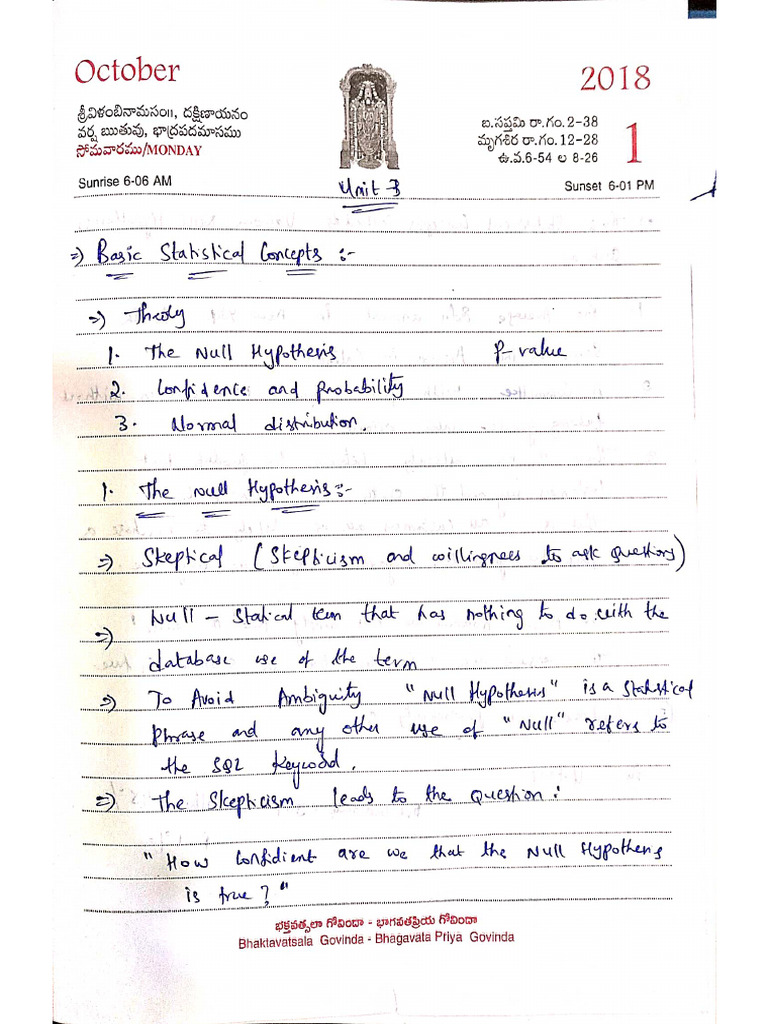 October
2018
శ్రీవిళంబినామసం॥, దక్షిణాయనం
వర్ష ఋతువు, భాద్రపదమాసము
సోమవారము/MONDAY
Sunrise 6-06 AM
బ.సప్తమి రా.గం.2-38
మృగశిర రా.గం.12-28
ఉ.వ.6-54 ల 8-26
1
Sunset 6-01 PM
Unit-3
=> Basic Statistical Concepts :-
=> Theory
1. The Null Hypothesis P-value
2. Confidence and Probability
3. Normal distribution.
1. The Null Hypothesis :-
=> Skeptical (Skepticism and willingness to ask questions)
=> Null - Statical term that has nothing to do with the
database use of the term
=> To Avoid Ambiguity "Null Hypothesis" is a Statistical
Phrase and any other use of "Null" refers to
the SQL Keyword.
=> The Skepticism leads to the Question :
"How Confidient are we that the Null Hypothesis
is true?"
భక్తవత్సలా గోవిందా - భాగవతప్రియ గోవిందా
Bhaktavatsala Govinda - Bhagavata Priya Govinda